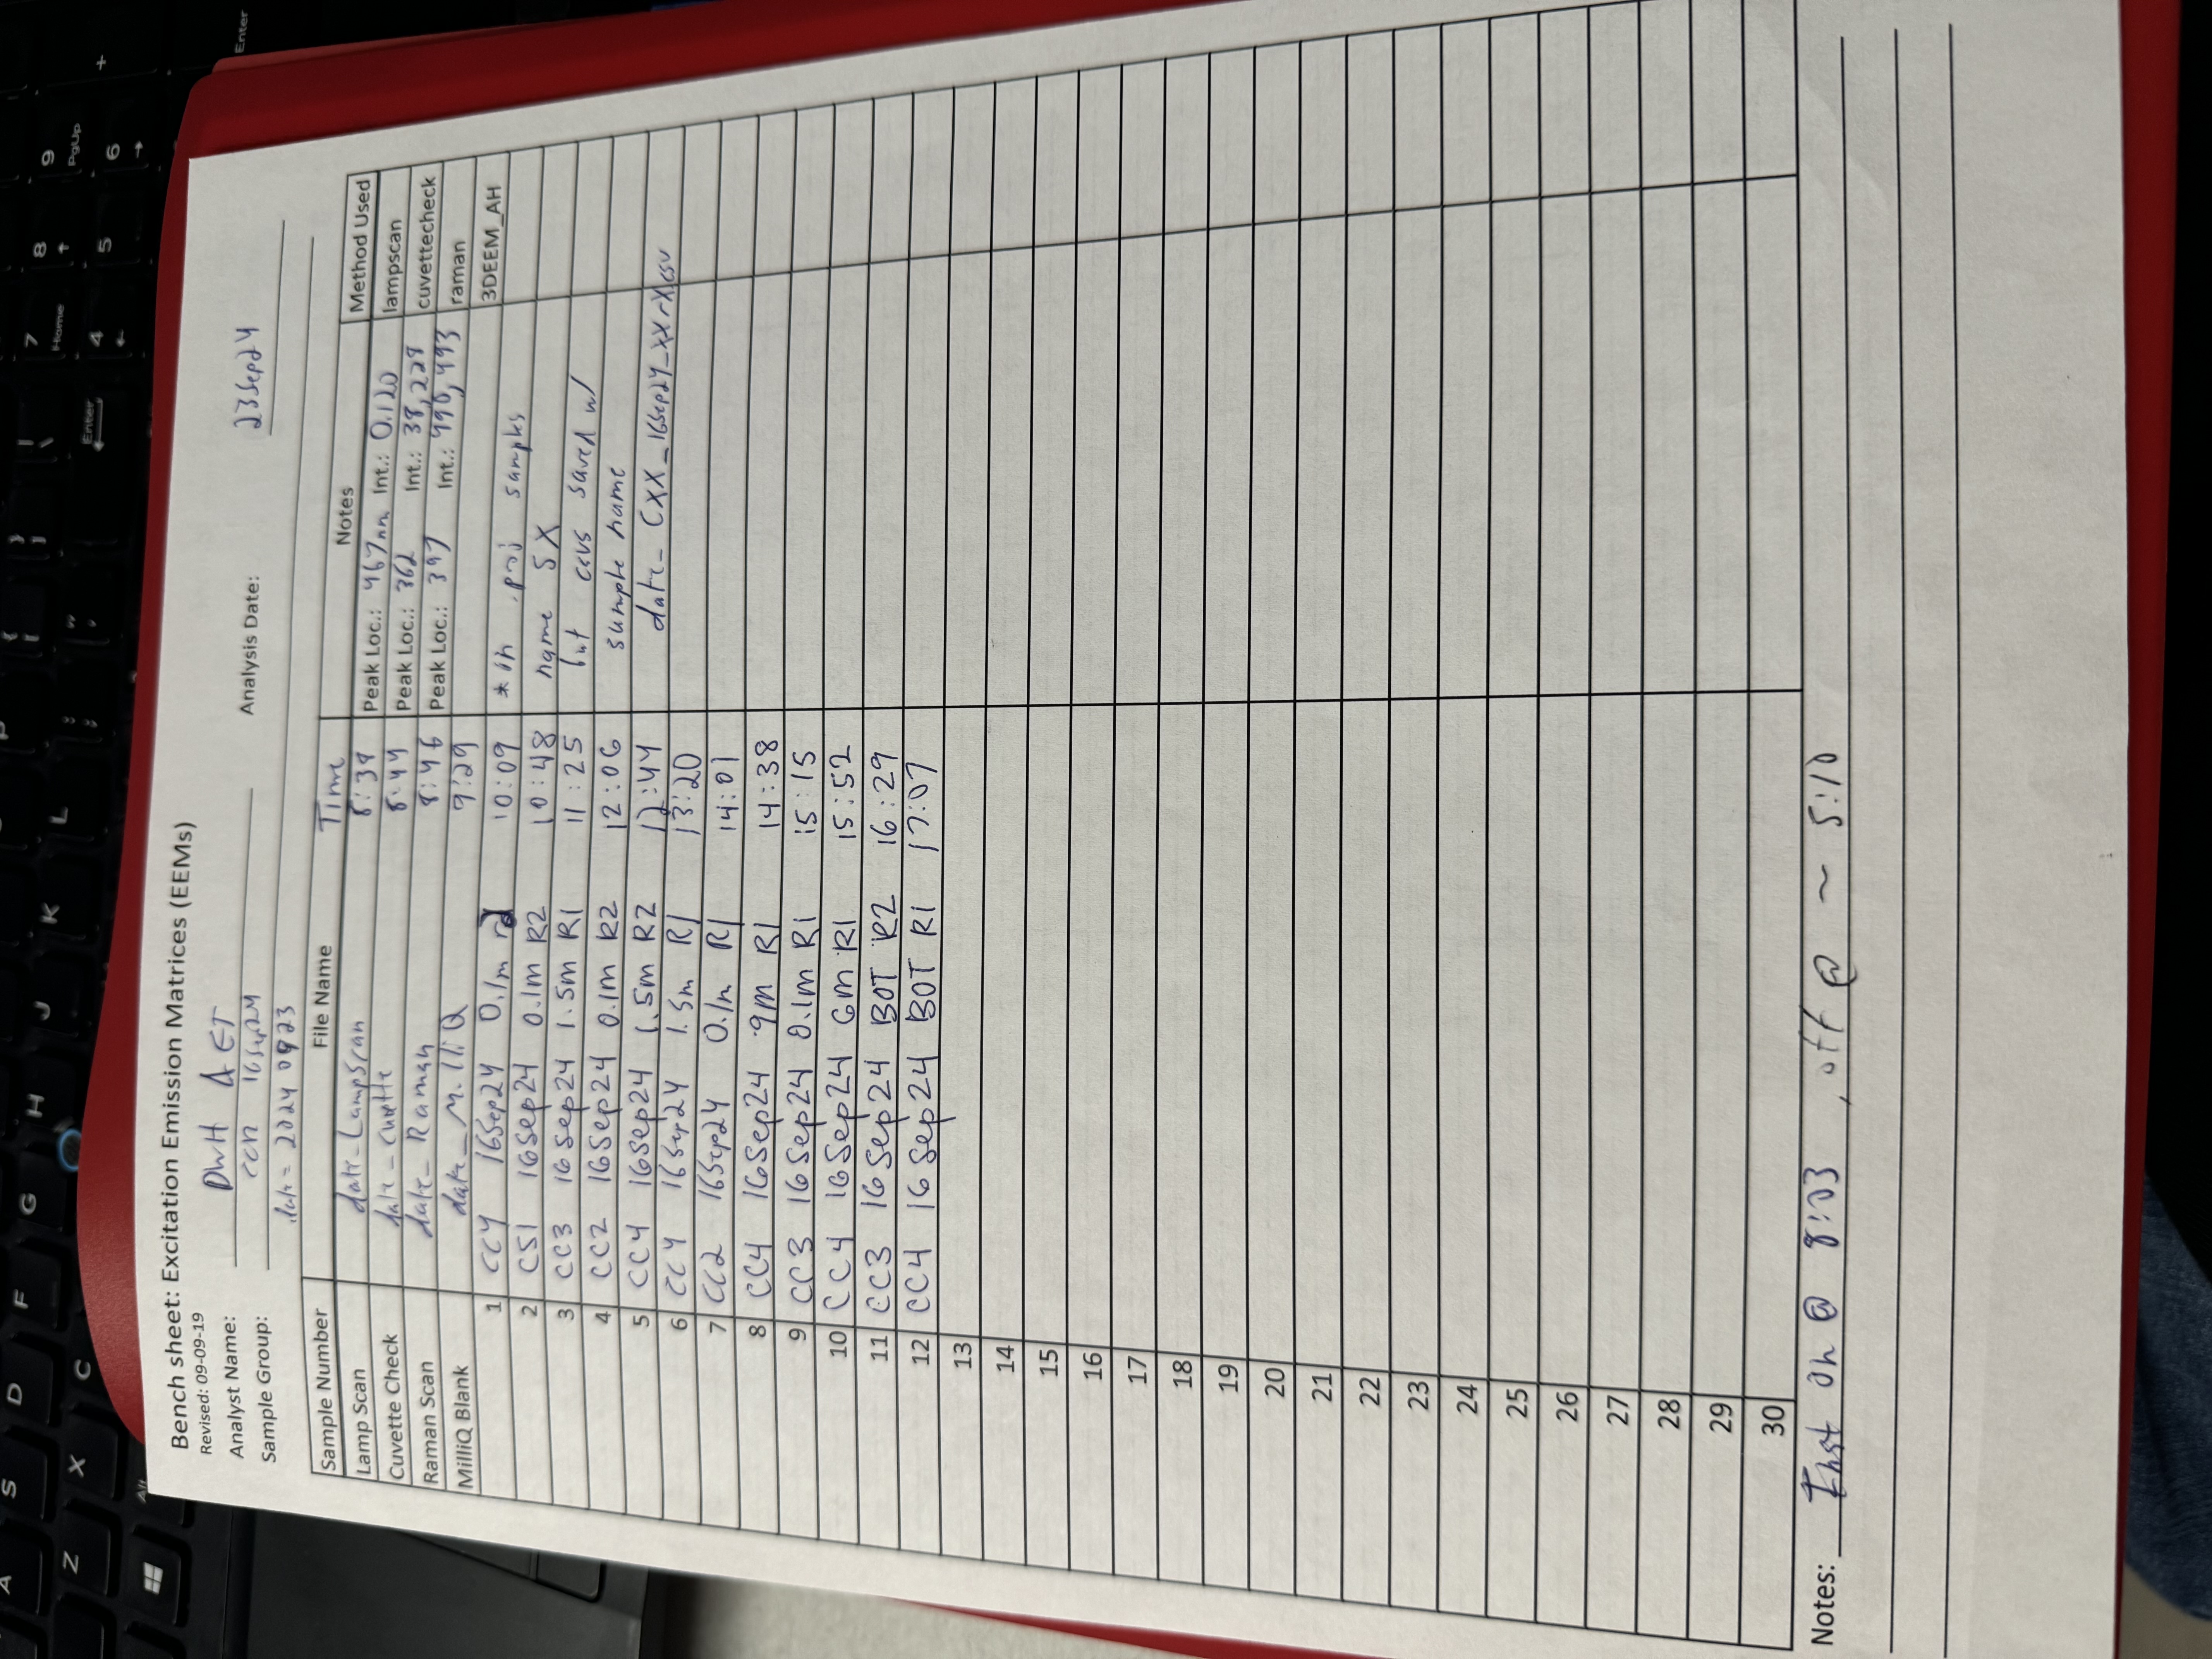 Bench sheet: Excitation Emission Matrices (EEMs)
Revised: 09-09-19
Analyst Name: DWH & ET Analysis Date: 23Sep24
Sample Group: CCR 16Sep24
date = 20240923
Sample Number File Name Time Notes Method Used
Lamp Scan date_LampScan 8:38 Peak Loc.: 467nm Int.: 0.120 lampscan
Cuvette Check date_cuvette 8:44 Peak Loc.: 362 Int.: 38,228 cuvettecheck
Raman Scan date_Raman 8:46 Peak Loc.: 397 Int.: 490,493 raman
MilliQ Blank date_MilliQ 9:29 3DEEM_AH
1 CC4 16Sep24 0.1m 10:09 *in .proj samples
2 CS1 16Sep24 0.1m R2 10:48 name SX
3 CC3 16Sep24 1.5m R1 11:25 but csvs saved w/
4 CC2 16Sep24 0.1m R2 12:06 sample name
5 CC4 16Sep24 1.5m R2 12:44 date_CXX_16Sep24_XXrX.csv
6 CC4 16Sep24 1.5m R1 13:20
7 CC2 16Sep24 0.1m R1 14:01
8 CC4 16Sep24 9m R1 14:38
9 CC3 16Sep24 0.1m R1 15:15
10 CC4 16Sep24 6m R1 15:52
11 CC3 16Sep24 BOT R2 16:29
12 CC4 16Sep24 BOT R1 17:07
13
14
15
16
17
18
19
20
21
22
23
24
25
26
27
28
29
30
Notes: Inst on @ 8:03 , off @ ~ 5:10